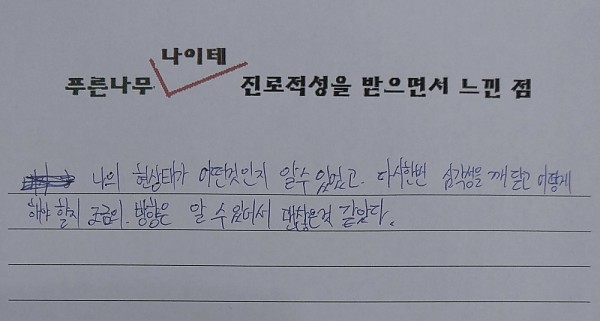 나이테
푸른나무 진로적성을 받으면서 느낀 점
나의 현상태가 어떤것인지 알수 있었고. 다시한번 심각성을 깨닫고 어떻게
해야 할지 궁금의. 방향은 알 수 있어서 괜찮은것 같았다.